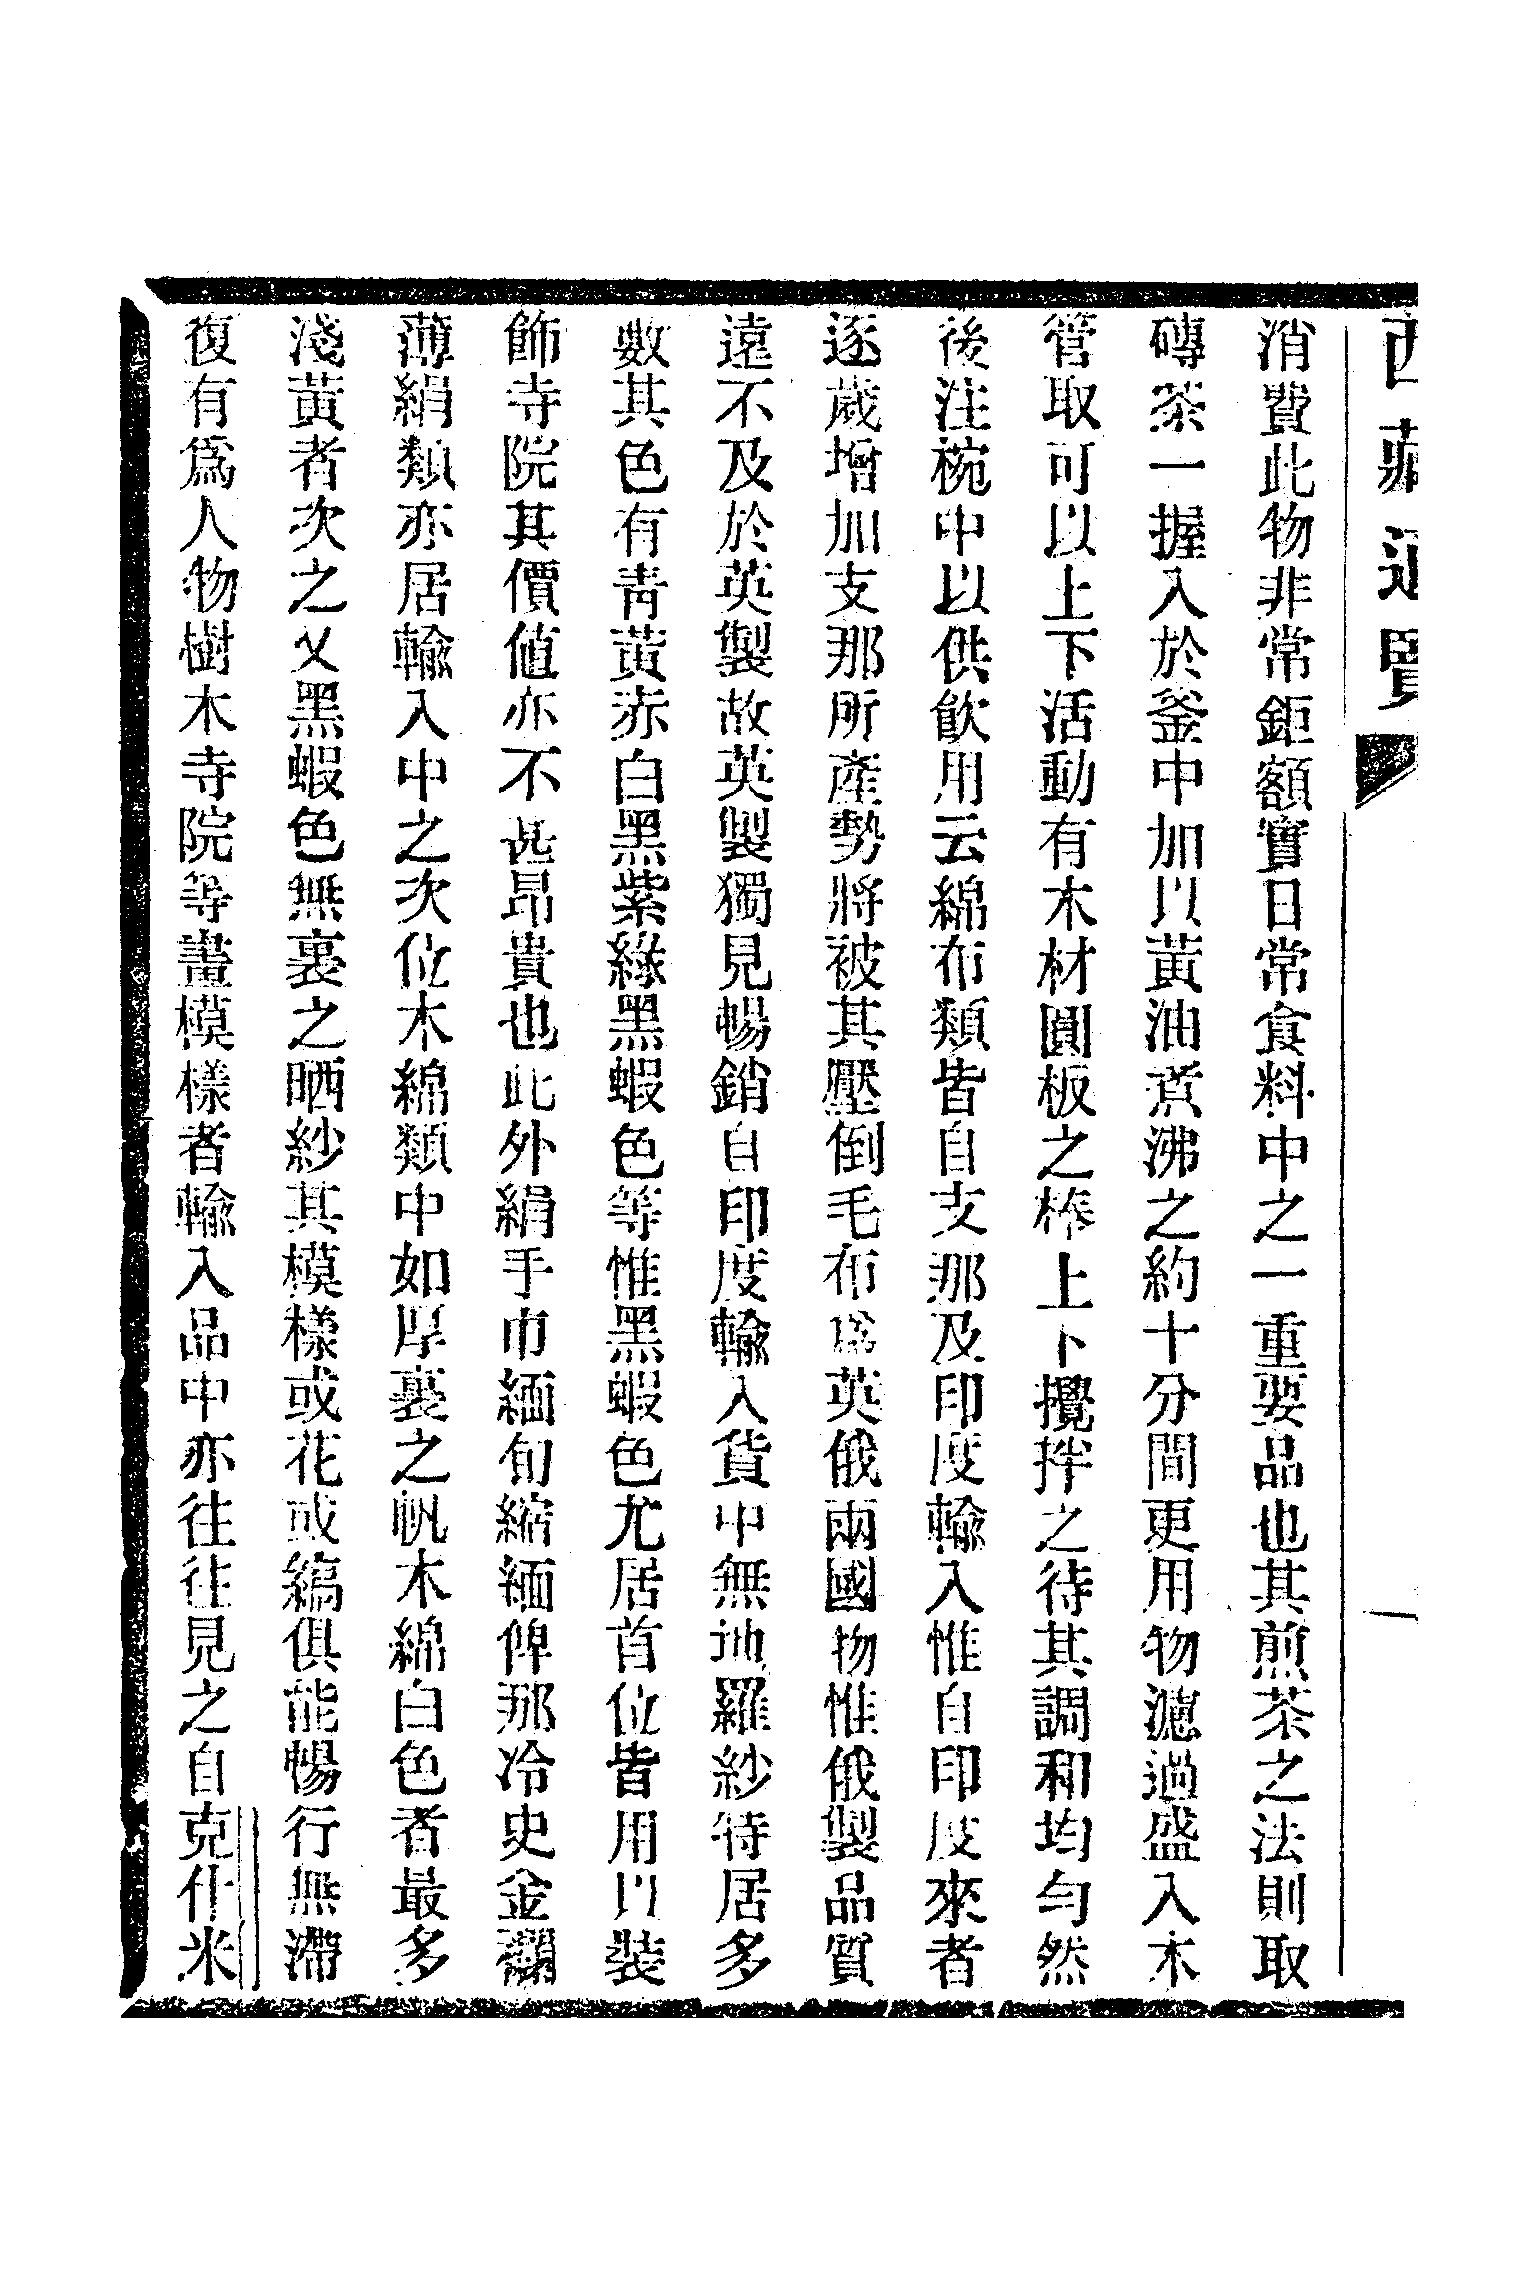 西藏通覽
消費此物非常鉅額實日常食料中之一重要品也其煎茶之法則取
磚茶一握入於釜中加以黃油煮沸之約十分間更用物濾過盛入木
管取可以上下活動有木材圓板之棒上下攪拌之待其調和均勻然
後注椀中以供飲用云綿布類皆自支那及印度輸入惟自印度來者
逐歲增加支那所產勢將被其壓倒毛布爲英俄兩國物惟俄製品質
遠不及於英製故英製獨見暢銷自印度輸入貨中無地羅紗特居多
數其色有青黃赤白黑紫綠黑蝦色等惟黑蝦色尤居首位皆用以裝
飾寺院其價值亦不甚昂貴也此外絹手巾緬甸縮緬俾那冷史金襴
薄絹類亦居輸入中之次位木綿類中如厚裏之帆木綿白色者最多
淺黃者次之又黑蝦色無裏之晒紗其模樣或花或縞俱能暢行無滯
復有爲人物樹木寺院等畫模樣者輸入品中亦往往見之自克什米